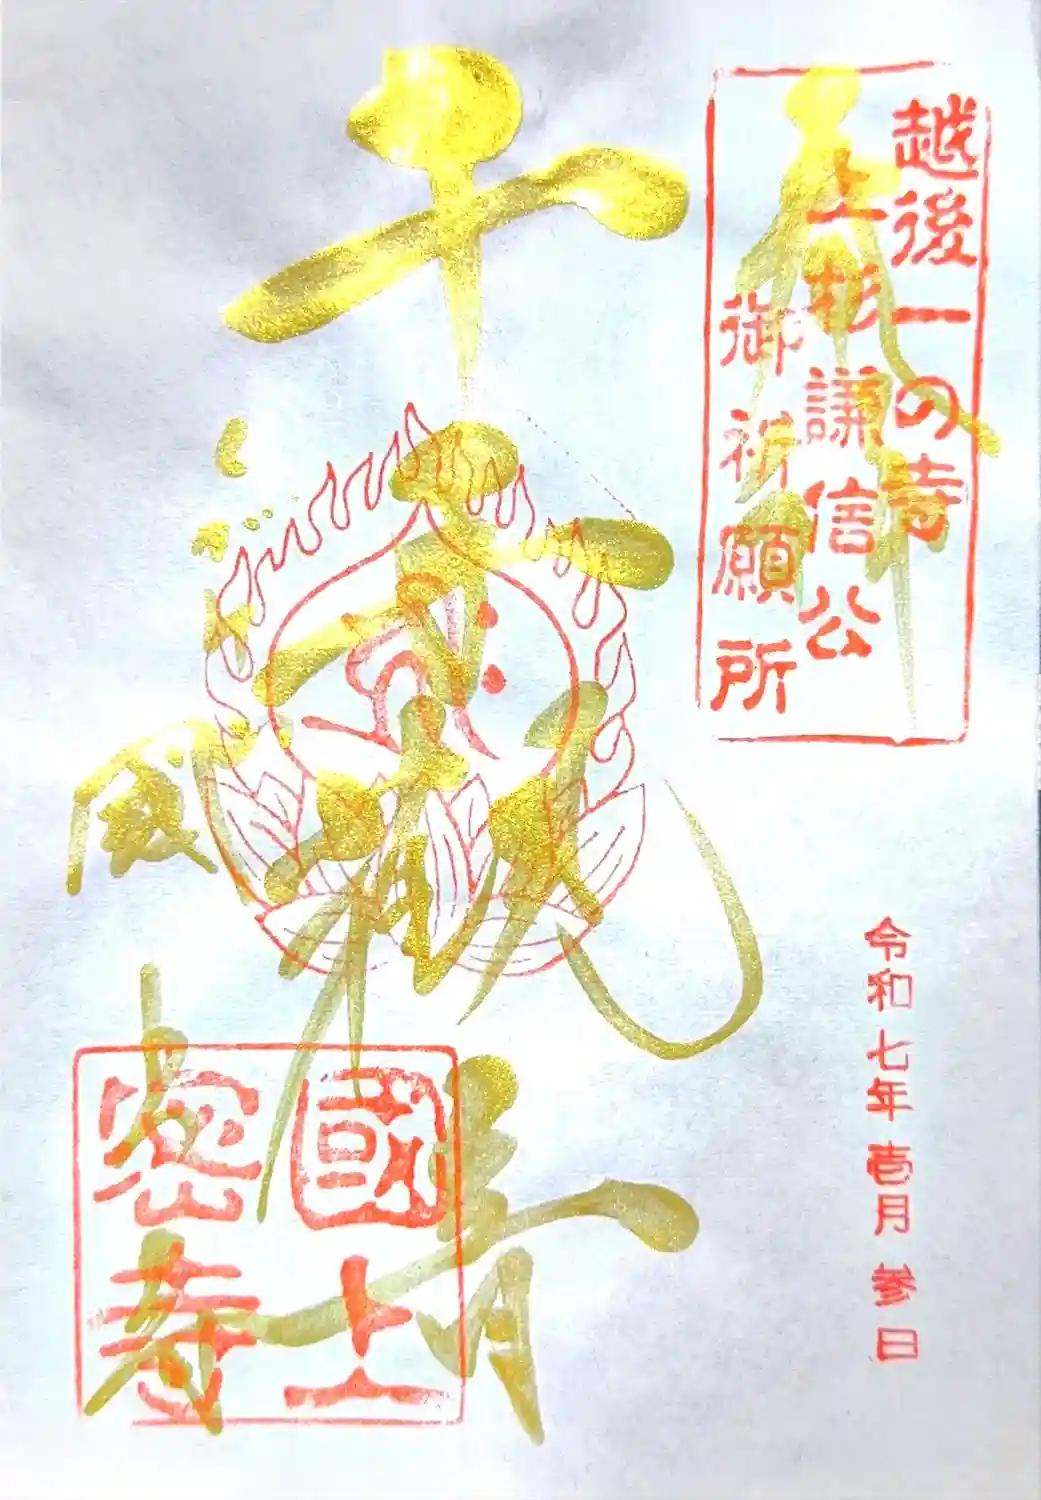 越後一の寺
上杉謙信公
御祈願所
奉拝
千手観音
国上寺
令和七年壱月参日
國上
密寺